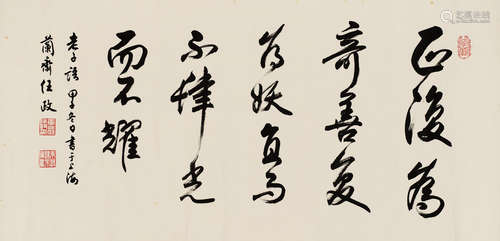 正復為
奇善復
為妖直而
不肆光
而不耀
老子語甲子冬日書于上海
蘭齋任政